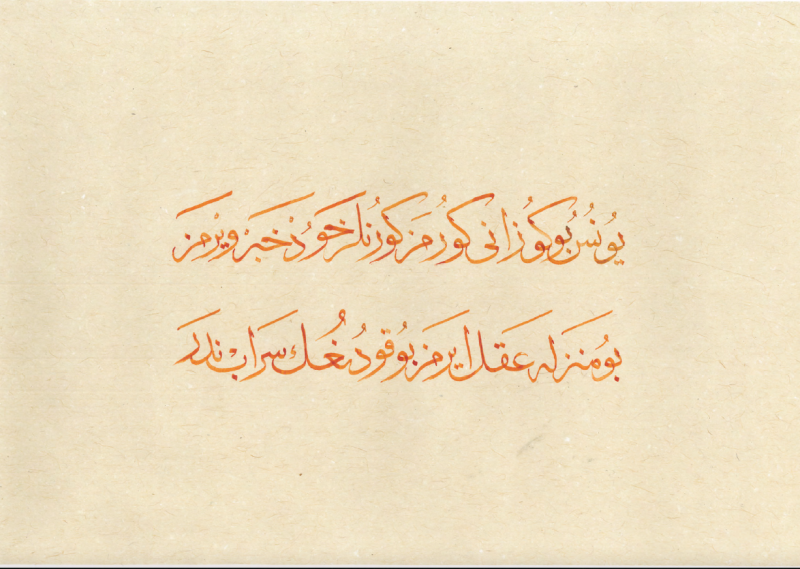 يُونُس بُو كُوزْ آنى كُورْمَز كُورَنْلَر خَوُدْ خَبَرْ ويرْمَز
بُو مَنزِله عَقل ايرمَز بُو قُودُغُك سَرَابْ نَدَر